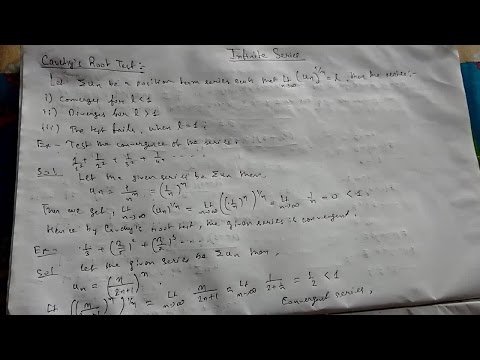 Infinite Series
Cauchy's Root Test:-
Let Σun be a positive term series such that Lt n→∞ (un)^1/n = l, then the series:-
i) Converges for l < 1
ii) Diverges for l > 1
iii) The test fails, when l = 1.
Ex- Test the convergence of the series:
Sol- Let the given series be Σun then
un = 1/n^n = (1/n)^n
Then we get, Lt n→∞ (un)^1/n = Lt n→∞ ((1/n)^n)^1/n = Lt n→∞ 1/n = 0 < 1.
Hence by Cauchy's root test, the given series is convergent.
Ex- 1/3 + (2/5)^2 + (3/7)^3 ......
Sol- Let the given series be Σun then,
un = (n/2n+1)^n
Lt ((n/2n+1)^n)^1/n = Lt n→∞ n/2n+1 = Lt n→∞ 1/2+1/n = 1/2 < 1
Convergent series,